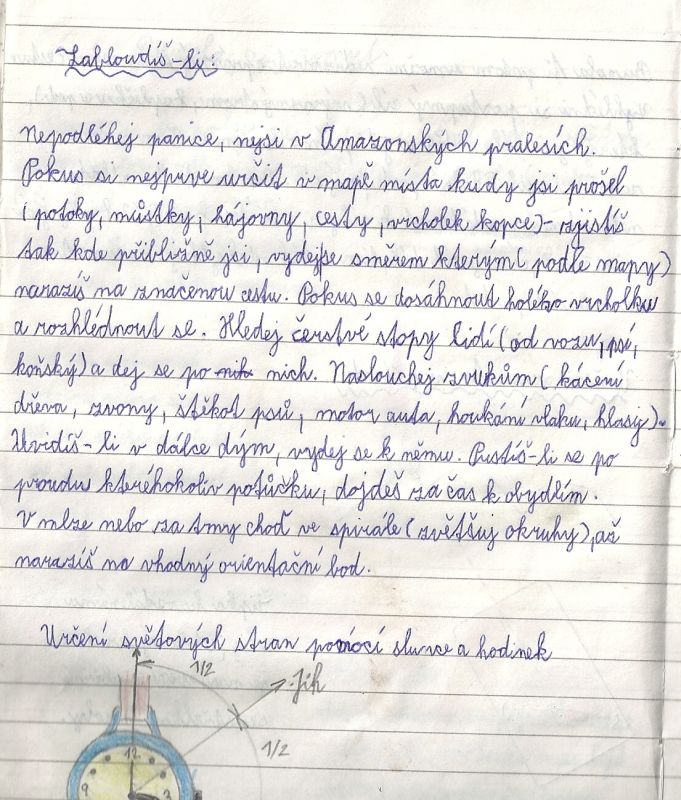 Zabloudíš-li:
Nepodléhej panice, nejsi v Amazonských pralesích.
Pokus si nejprve určit v mapě místa kudy jsi prošel
(potoky, můstky, hájovny, cesty, vrcholek kopce)-zjistíš
tak kde přibližně jsi, vydej se směrem kterým(podle mapy)
narazíš na značenou cestu. Pokus se dosáhnout holého vrcholku
a rozhlédnout se. Hledej čerstvé stopy lidí(od vozu, psí,
koňský) a dej se po nich. Naslouchej zvukům(kácení
dřeva, zvony, štěkot psů, motor auta, houkaní vlaku, hlasy).
Uvidíš-li v dálce dým, vydej se k němu. Pustíš-li se po
proudu kteréhokoliv potůčku, dojdeš za čas k obydlím.
V mlze nebo za tmy choď ve spirále(zvětšuj okruhy), až
narazíš na vhodný orientační bod.
Určení světových stran pomocí slunce a hodinek
1/2
Jih
1/2
12
9
3